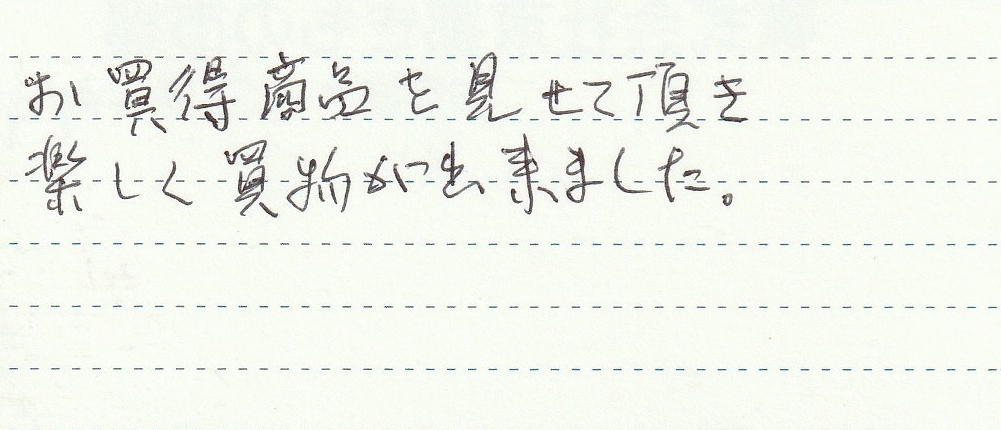 お買得商品を見せて頂き
楽しく買物が出来ました。